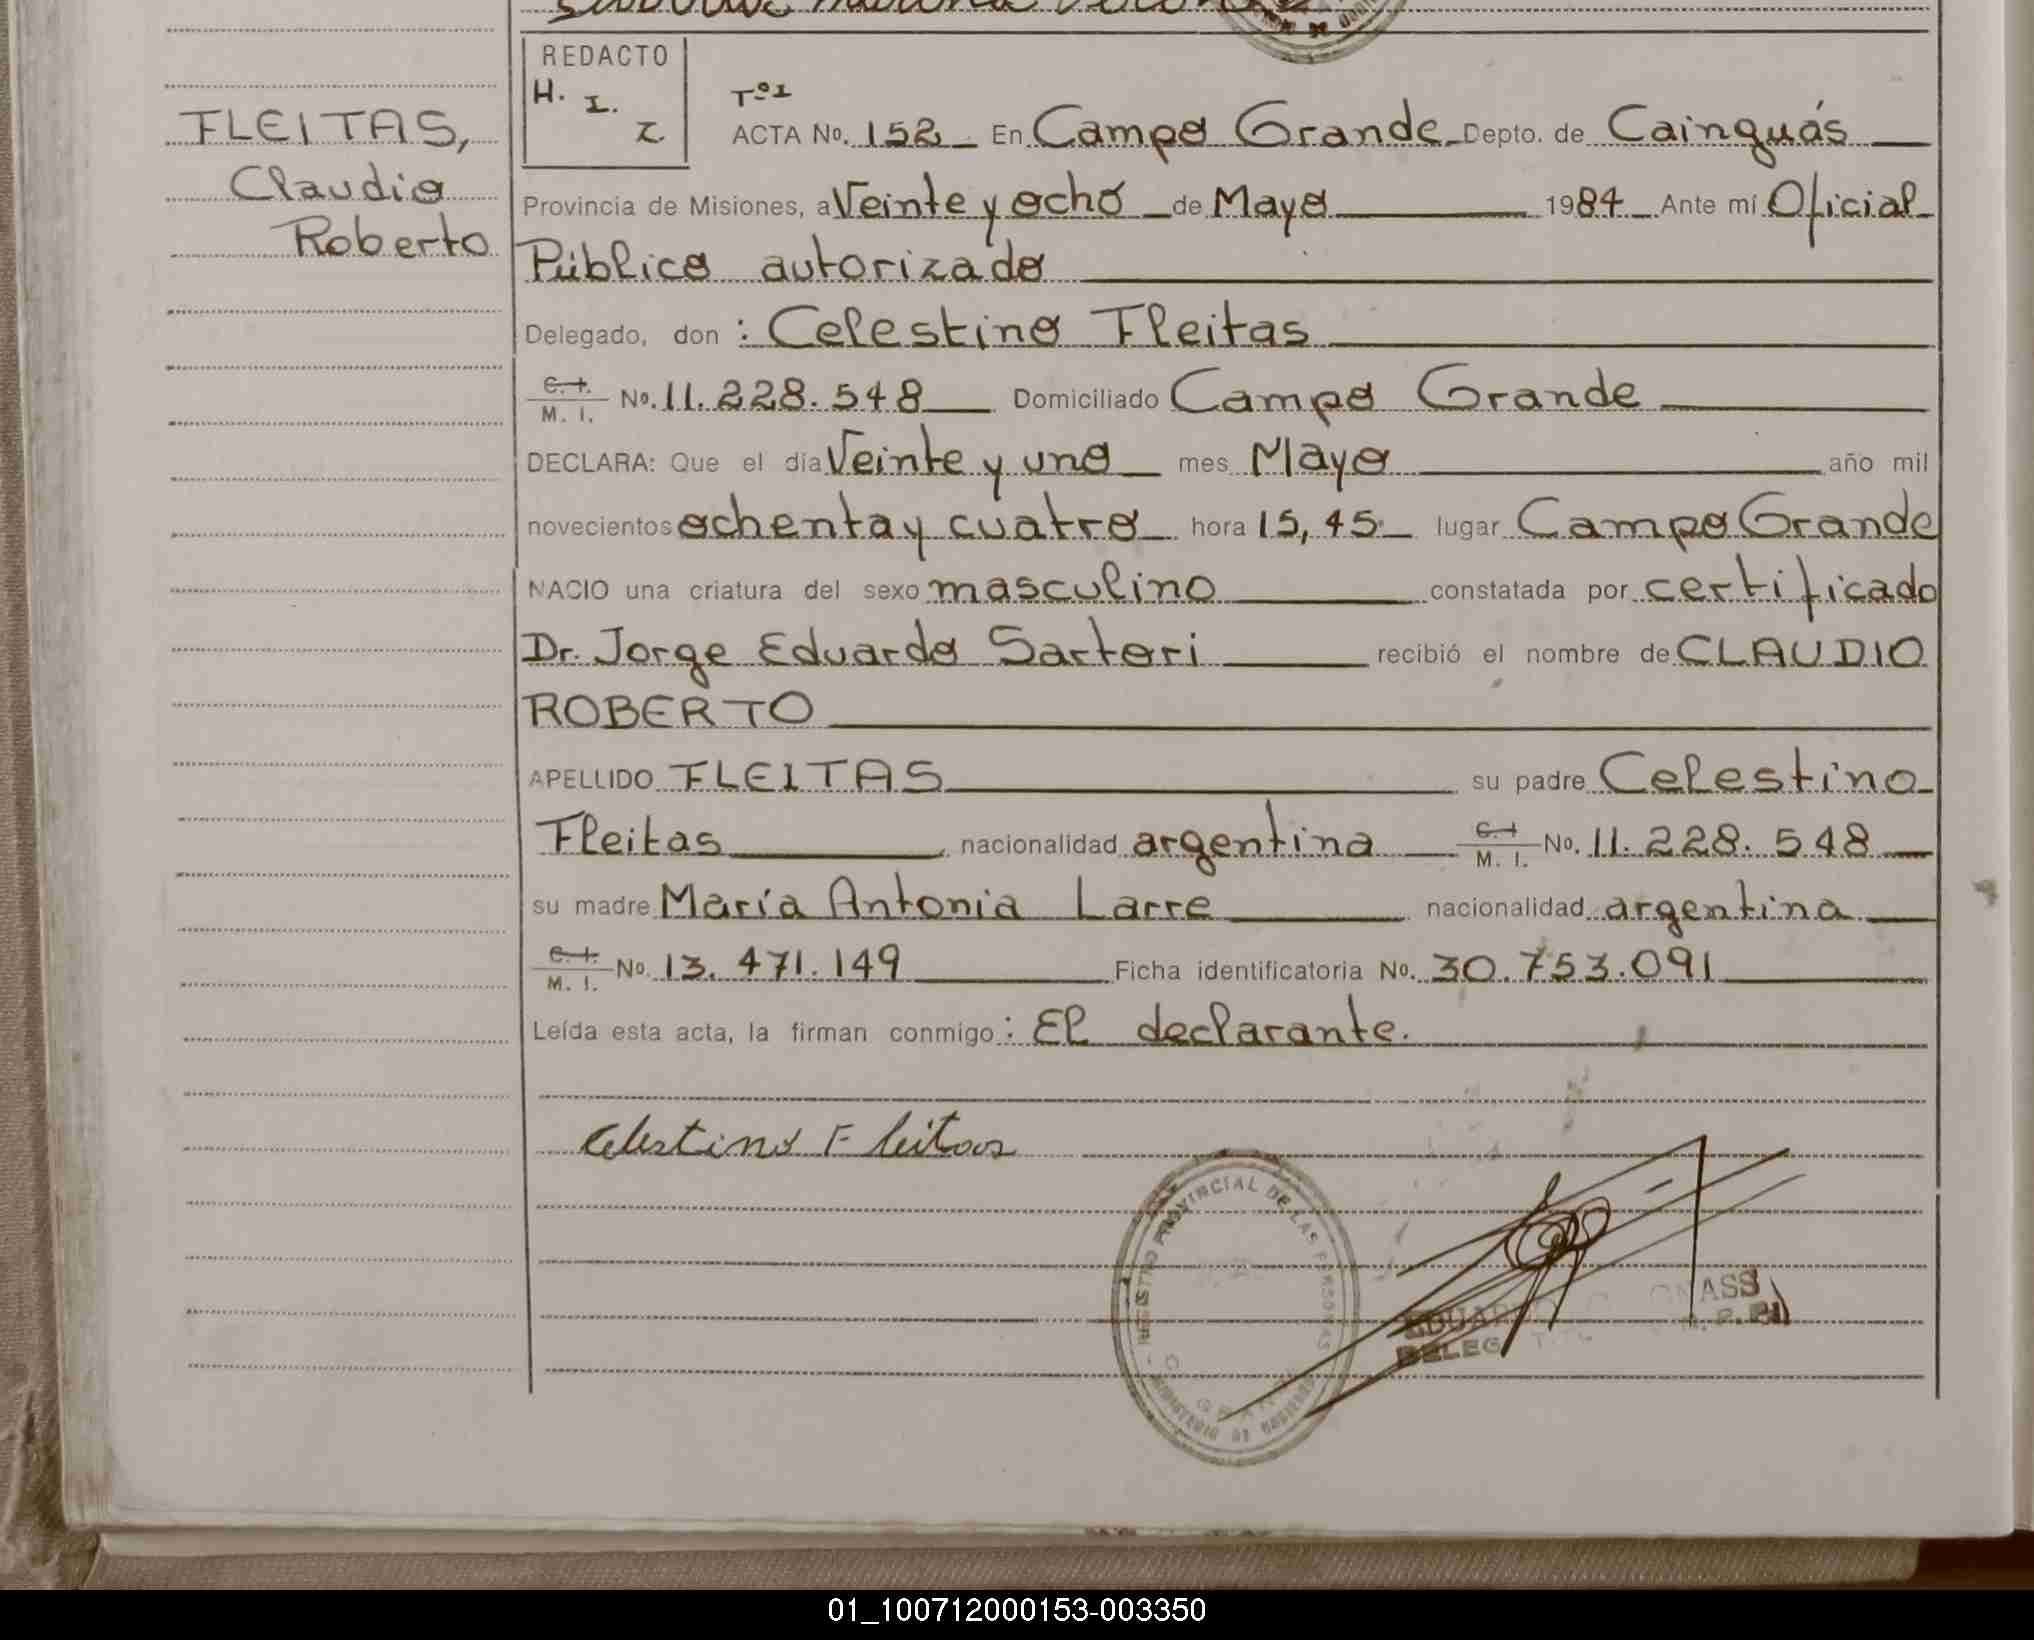 FLEITAS,
Claudio
Roberto
REDACTO
H. I. Z
Tº1
ACTA No. 152 En Campo Grande Depto. de Cainguás
Provincia de Misiones, a Veinte y ocho de Mayo 1984 Ante mí Oficial
Público autorizado
Delegado, don : Celestino Fleitas
C. I. M. I. No. 11.228.548 Domiciliado Campo Grande
DECLARA: Que el día Veinte y uno mes Mayo año mil
novecientos ochenta y cuatro hora 15,45 lugar Campo Grande
NACIO una criatura del sexo masculino constatada por certificado
Dr. Jorge Eduardo Sartori recibió el nombre de CLAUDIO
ROBERTO
APELLIDO FLEITAS su padre Celestino
Fleitas nacionalidad argentina C. I M. I. No. 11.228.548
su madre María Antonia Larre nacionalidad argentina
C. I. M. I. No. 13.471.149 Ficha identificatoria No. 30.753.091
Leída esta acta, la firman conmigo : El declarante.
Celestino Fleitas
REGISTRO PROVINCIAL DE LAS PERSONAS
MINISTERIO DE GOBIERNO
01_100712000153-003350